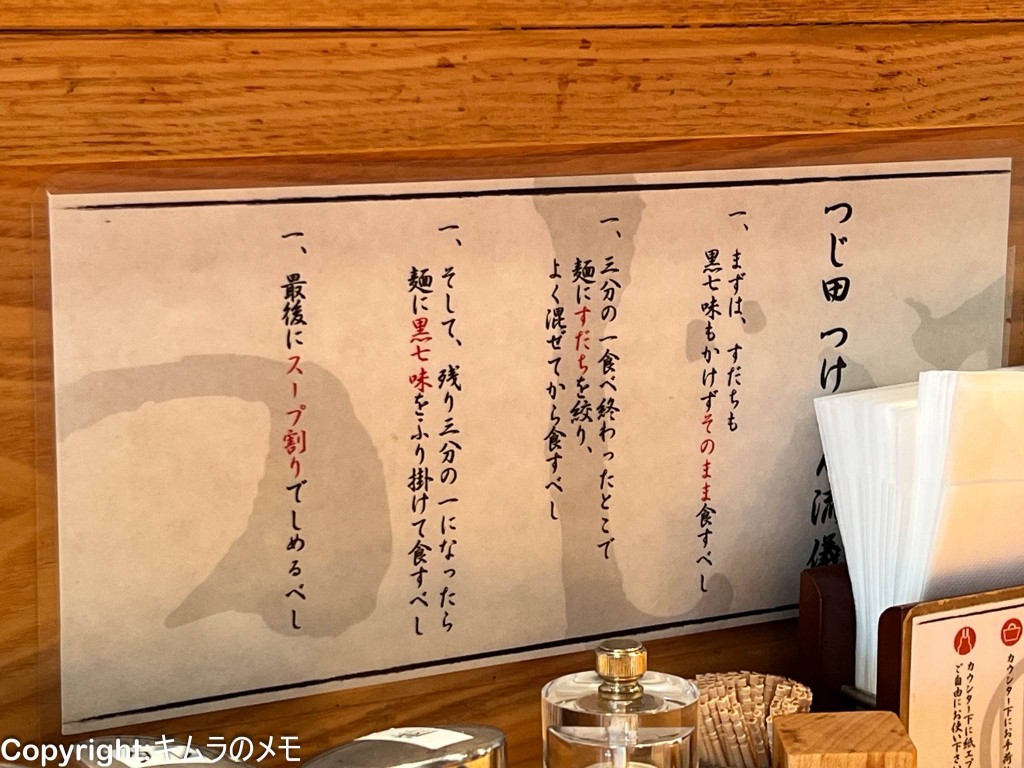 つじ田 つけ
流儀
一、まずは、すだちも
黒七味もかけずそのまま食すべし
一、三分の一食べ終わったとこで
麺にすだちを絞り、
よく混ぜてから食すべし
一、そして、残り三分の一になったら
麺に黒七味をふり掛けて食すべし
一、最後にスープ割りでしめるべし
カウンター下にお手荷
カウンター下に紙エプ
ご自由にお使い下さい
Copyright:キムラのメモ